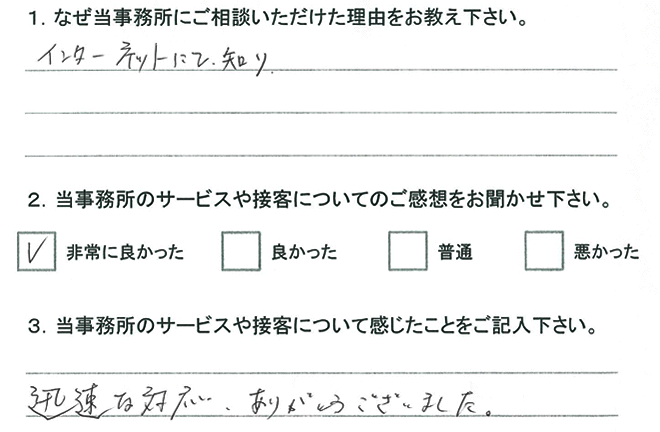 1. なぜ当事務所にご相談いただけた理由をお教え下さい。
インターネットにて、知り
2. 当事務所のサービスや接客についてのご感想をお聞かせ下さい。
✓ 非常に良かった 良かった 普通 悪かった
3. 当事務所のサービスや接客について感じたことをご記入下さい。
迅速な対応、ありがとうございました。